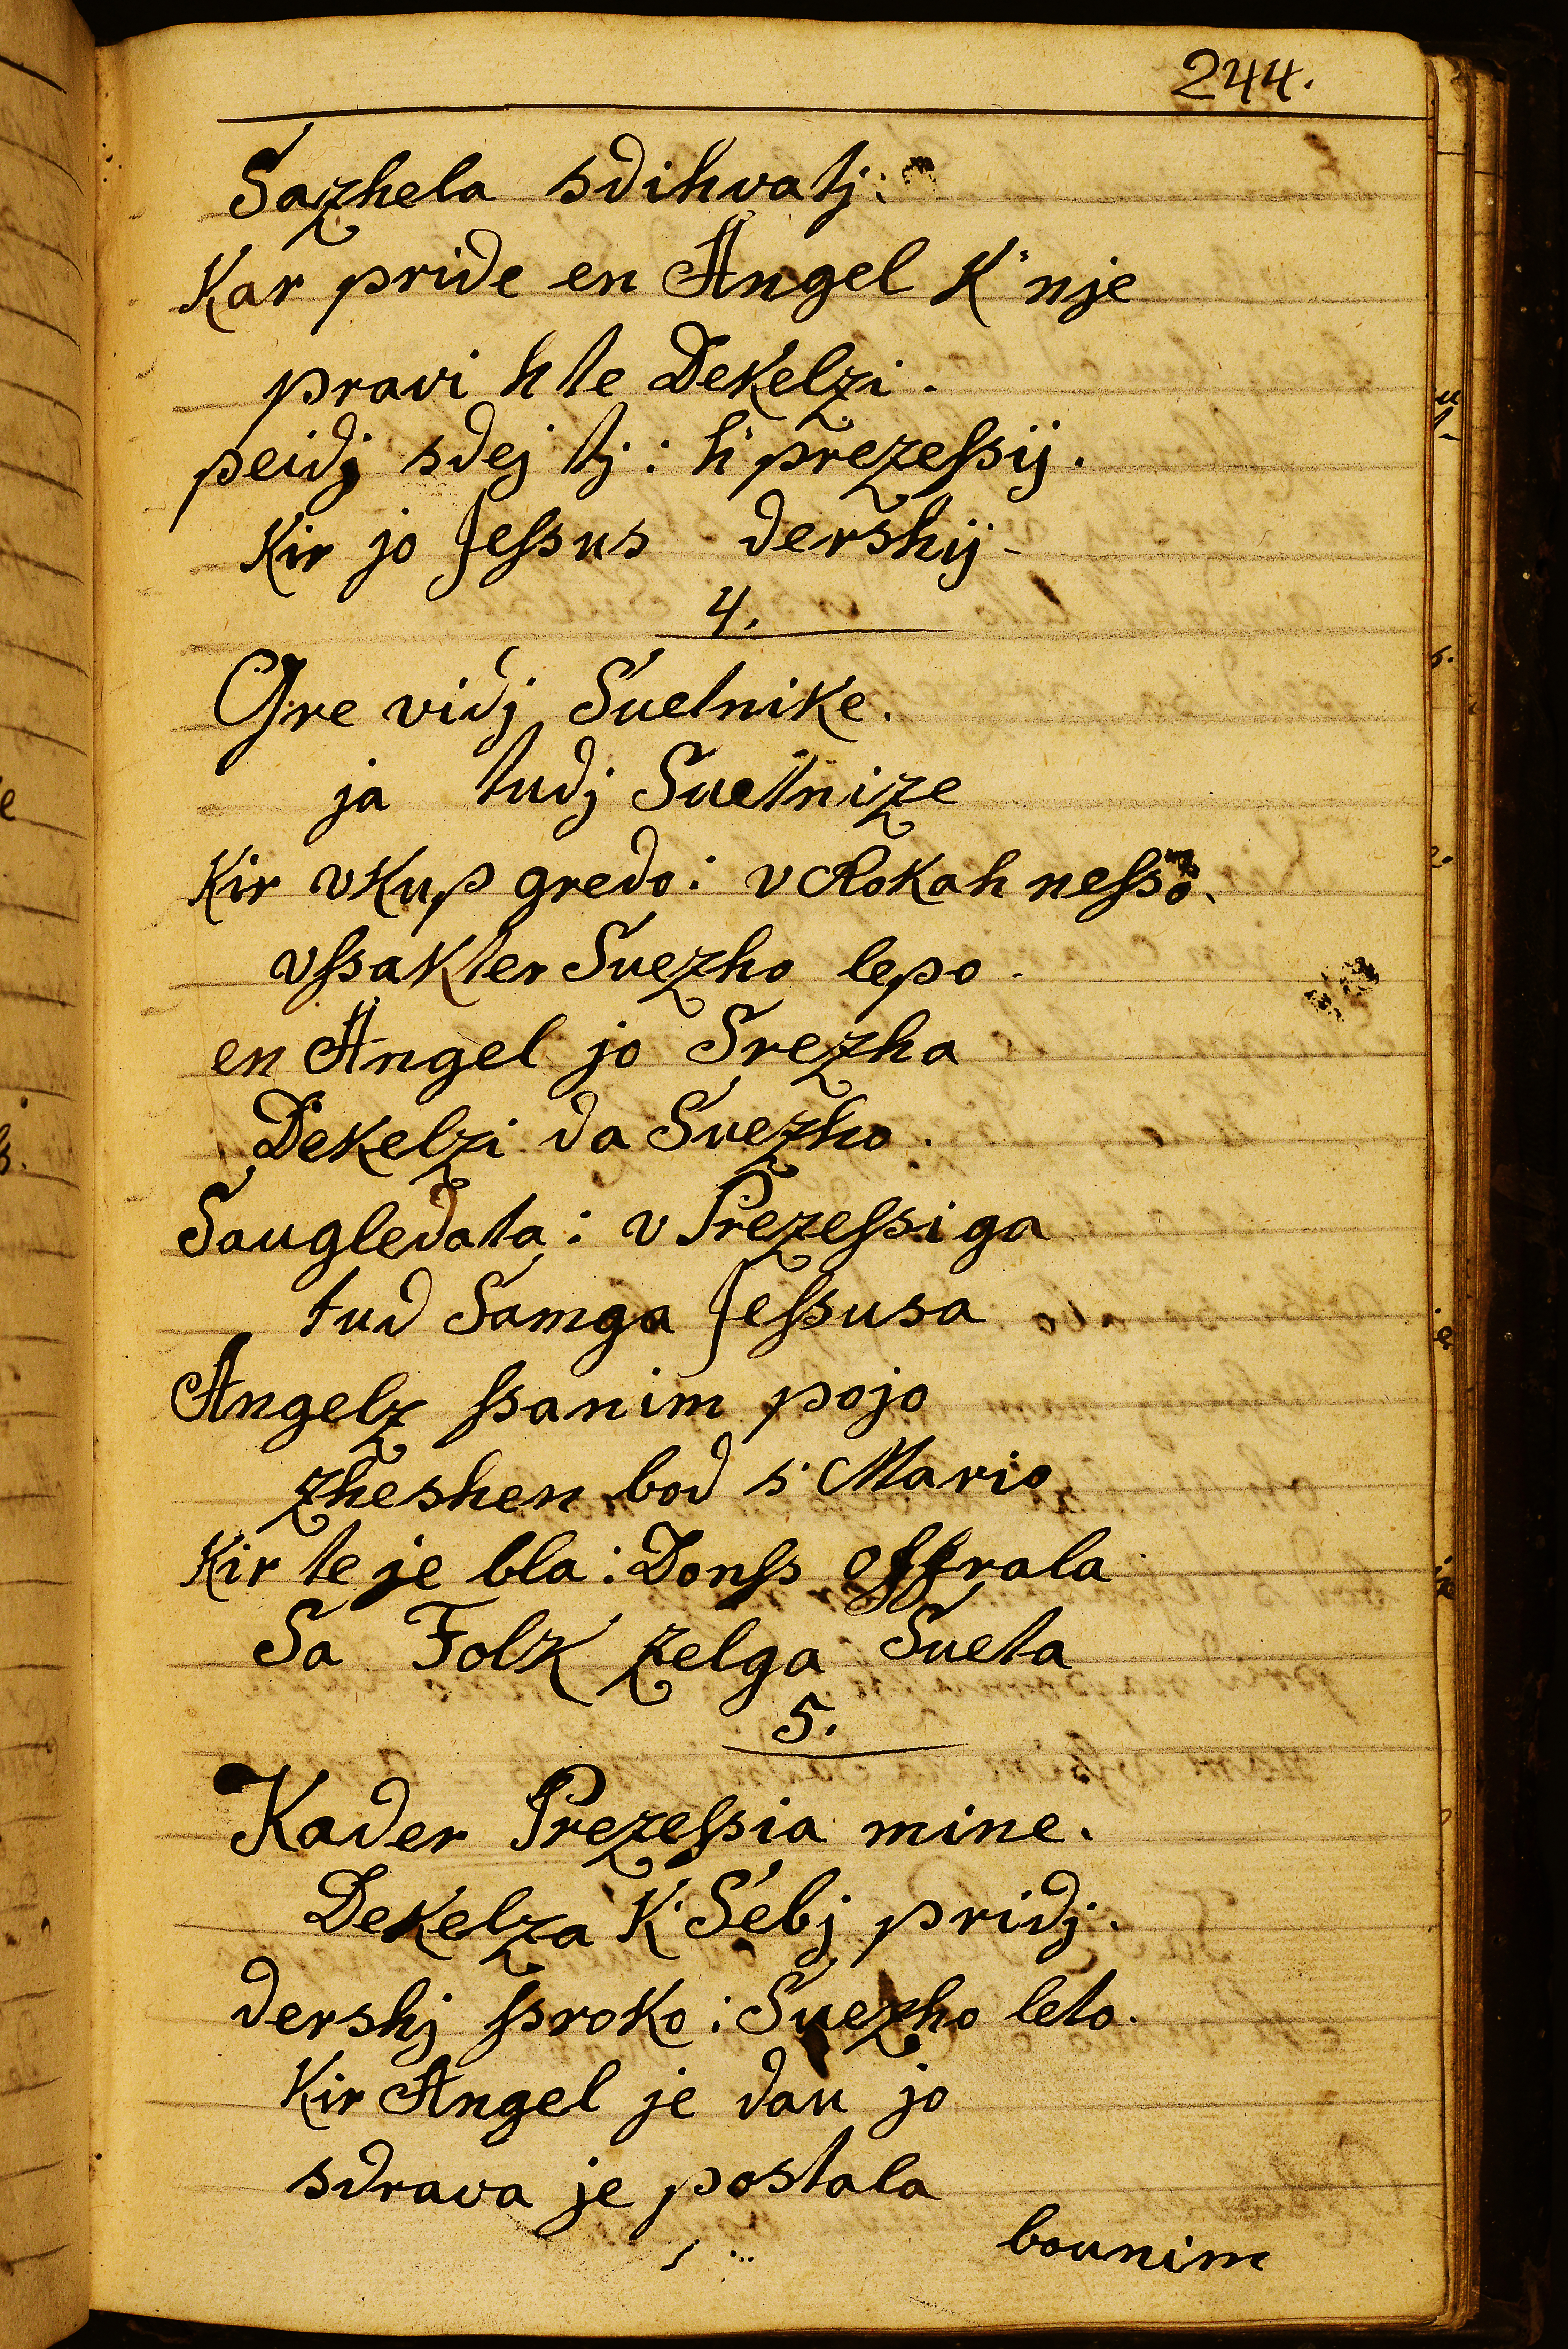 244.
Sazhela sdihvatj:
Kar pride en Angel K'nje
pravi h te Dekelzi.
peidj sdej tj: h'prezeſsij.
Kir jo Jeſsus dershij-
4.
Gre vidj Suetnike.
ja tudj Suetnize
Kir vKup gredo: v RoKah neſso.
vſsaKter Suezho lepo.
en Angel jo Srezha
Dekelzi da Suezho.
Saugledata: v Prezeſsiga
tud Samga Jeſsusa
Angelz ſsanim pojo
zheshen bod s' Mario
Kir te je bla: Donſs offrala
Sa FolK zelga Sueta
5.
Kader Prezeſsia mine.
Dekelza K' Sebj pridj.
dershj ſsroko: Suezho leto.
Kir Angel je dau jo
sdrava je postala
bounim